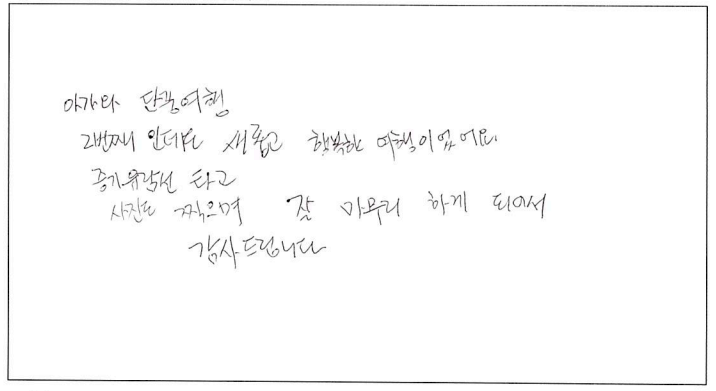 아가와 단풍여행
2번째 인데도 새롭고 행복한 여행이었어요.
증기유람선 타고
사진도 찍으며 잘 마무리 하게 되어서
감사드립니다